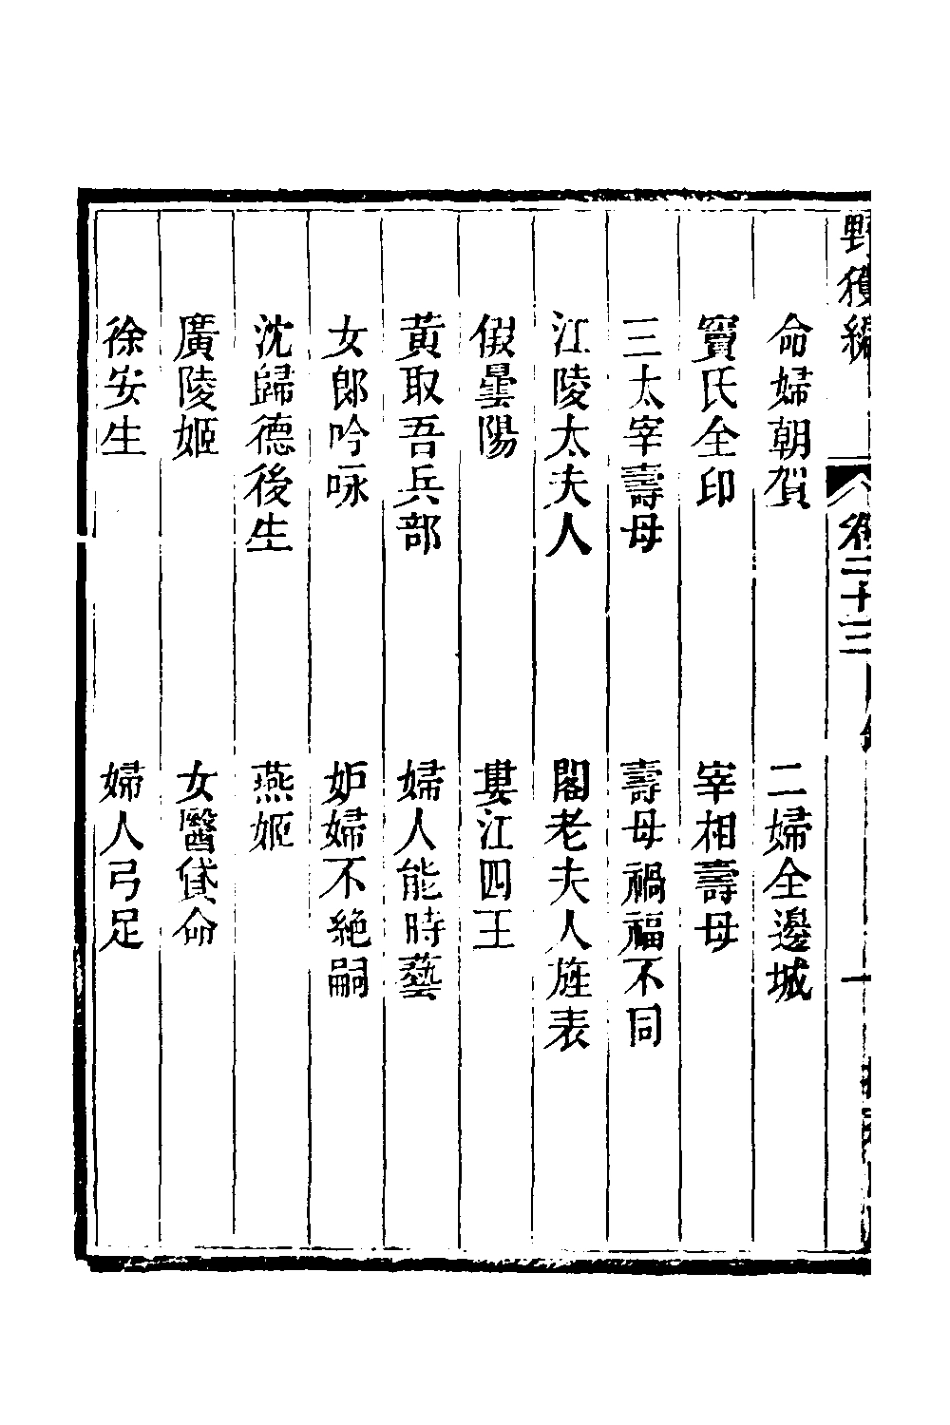 野獲編
卷二十三
一
命婦朝賀
二婦全邊城
竇氏全印
宰相壽母
三太宰壽母
壽母禍福不同
江陵太夫人
閣老夫人旌表
假曇陽
婁江四王
黃取吾兵部
婦人能時藝
女郎吟咏
妒婦不絶嗣
沈歸德後生
燕姬
廣陵姬
女醫貸命
徐安生
婦人弓足